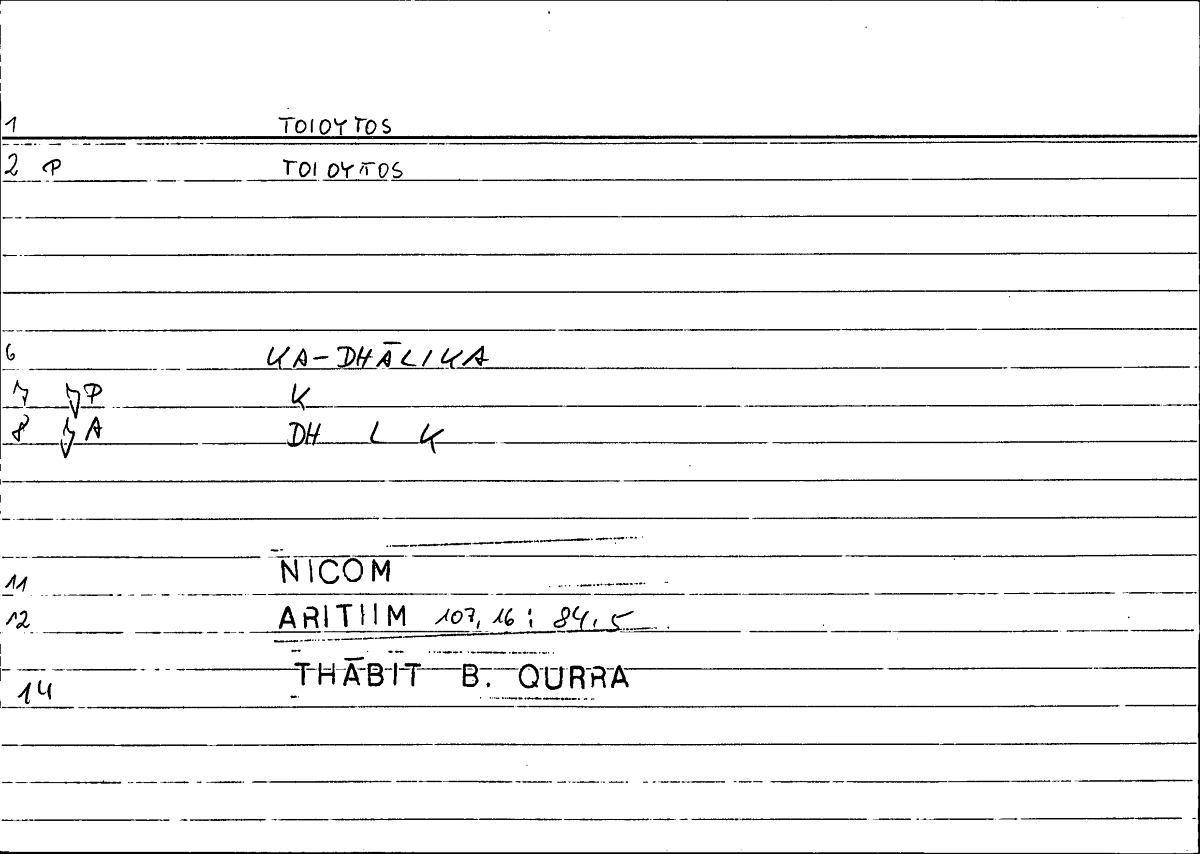 1 TOIOYTOS
2 P TOIOYTOS
6 KA-DHĀLIKA
7 P K
8 A DH L K
11 NICOM
12 ARITHM 107,16 : 84,5
14 THĀBIT B. QURRA